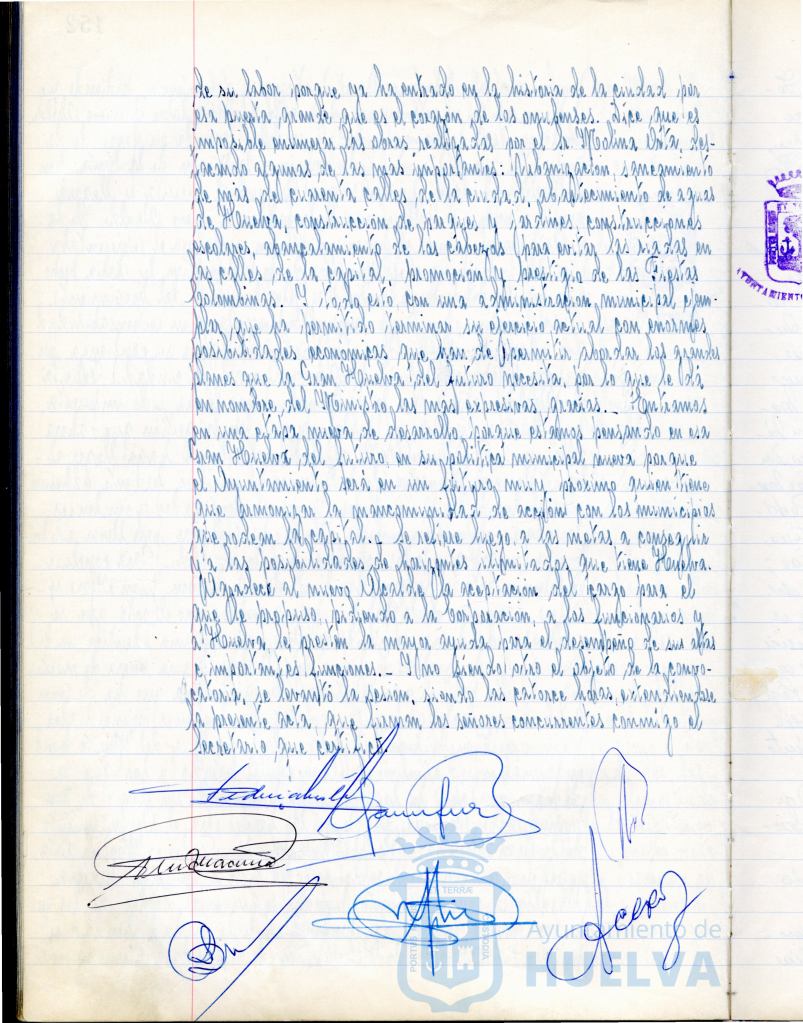 de su labor, porque ya ha entrado en la historia de la ciudad por
esa puerta grande que es el corazón de los onubenses. Dice, que es
imposible enumerar las obras realizadas por el Sr. Molina Orta, des-
tacando algunas de las más importantes: Urbanización, saneamiento
de más de cuarenta calles de la ciudad, abastecimiento de aguas
de Huelva, construcción de parques y jardines, construcciones
escolares, de los Cabezos para evitar las riadas en
las calles de la capital, promoción y prestigio de las Fiestas
Colombinas. Y todo esto con una administración municipal ejem-
plar, que ha permitido terminar su ejercicio actual con enormes
posibilidades económicas que han de permitir abordar los grandes
planes que la Gran Huelva del futuro necesita, por lo que le dá
en nombre del Ministro las más expresivas gracias.- Entramos
en una etapa nueva de desarrollo, porque estamos pensando en esa
Gran Huelva del futuro, en su política municipal nueva porque
el Ayuntamiento será en un futuro muy próximo quien tiene
que armonizar la mancomunidad de acción con los municipios
que rodean la capital.- Se refiere luego a las metas a conseguir
y a las posibilidades de horizontes ilimitados que tiene Huelva.
Agradece al nuevo Alcalde la aceptación del cargo para el
que se propuso, pidiendo a la Corporación, a los funcionarios y
a Huelva, le presten la mayor ayuda para el desempeño de sus altas
e importantes funciones.- Y no siendo otro el objeto de la convo-
catoria, se levantó la sesión, siendo las catorce horas, extendiéndose
la presente acta, que firman los señores concurrentes conmigo el
Secretario, que certifico.
AYUNTAMIENTO
TERRÆ
Ayuntamiento de
HUELVA